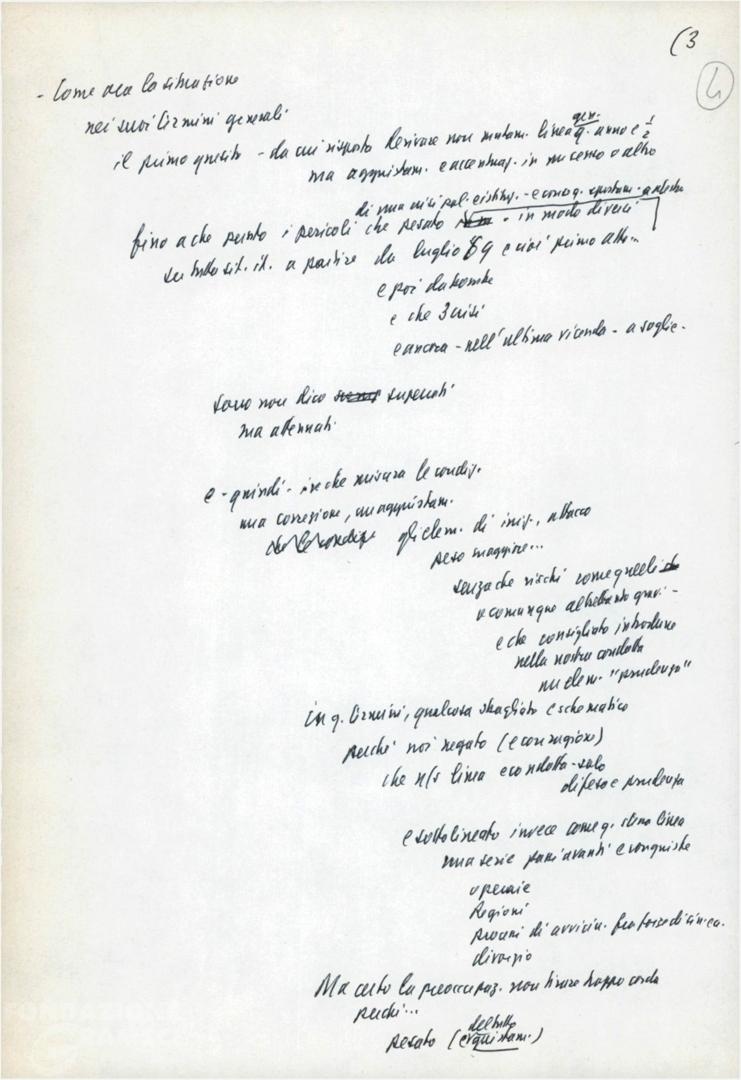 (3
4
- Come era la situazione
nei suoi termini generali
il primo quesito - da cui risposta derivare non mutam. linea gen. q. anno e 1/2
ma aggiustam. e accentuaz. in un senso o altro
di una crisi pol. e istituz. - e conseg.
fino a che punto i pericoli che pesato - in modo diversi
su tutta sit. it. a partire da luglio 69 e cioè primo atto...
e poi da bombe
e che 3 crisi
e ancora - nell'ultima vicenda - a soglie -
sono non dico superati
ma attenuati
e - quindi - in che misura le condiz.
una correzione, un aggiustam.
gli elem. di iniz., attacco
peso maggiore...
senza che rischi come quelli
o comunque altrettanto gravi -
e che consigliato introdurre
nella nostra condotta
un elem. "prudenza"
in q. termini, qualcosa sbagliato e schematico
perché noi negato (e con ragione)
che n/s linea e condotta - solo
difesa e prudenza
e sottolineato invece come q. stessa linea
una serie passi avanti e conquiste
operaie
Regioni
processi di avvicin. fra forze di sinistra.
divorzio
Ma certo la preoccupaz. non tirare troppo corda
perché...
pesato (del tutto
e giustam.)